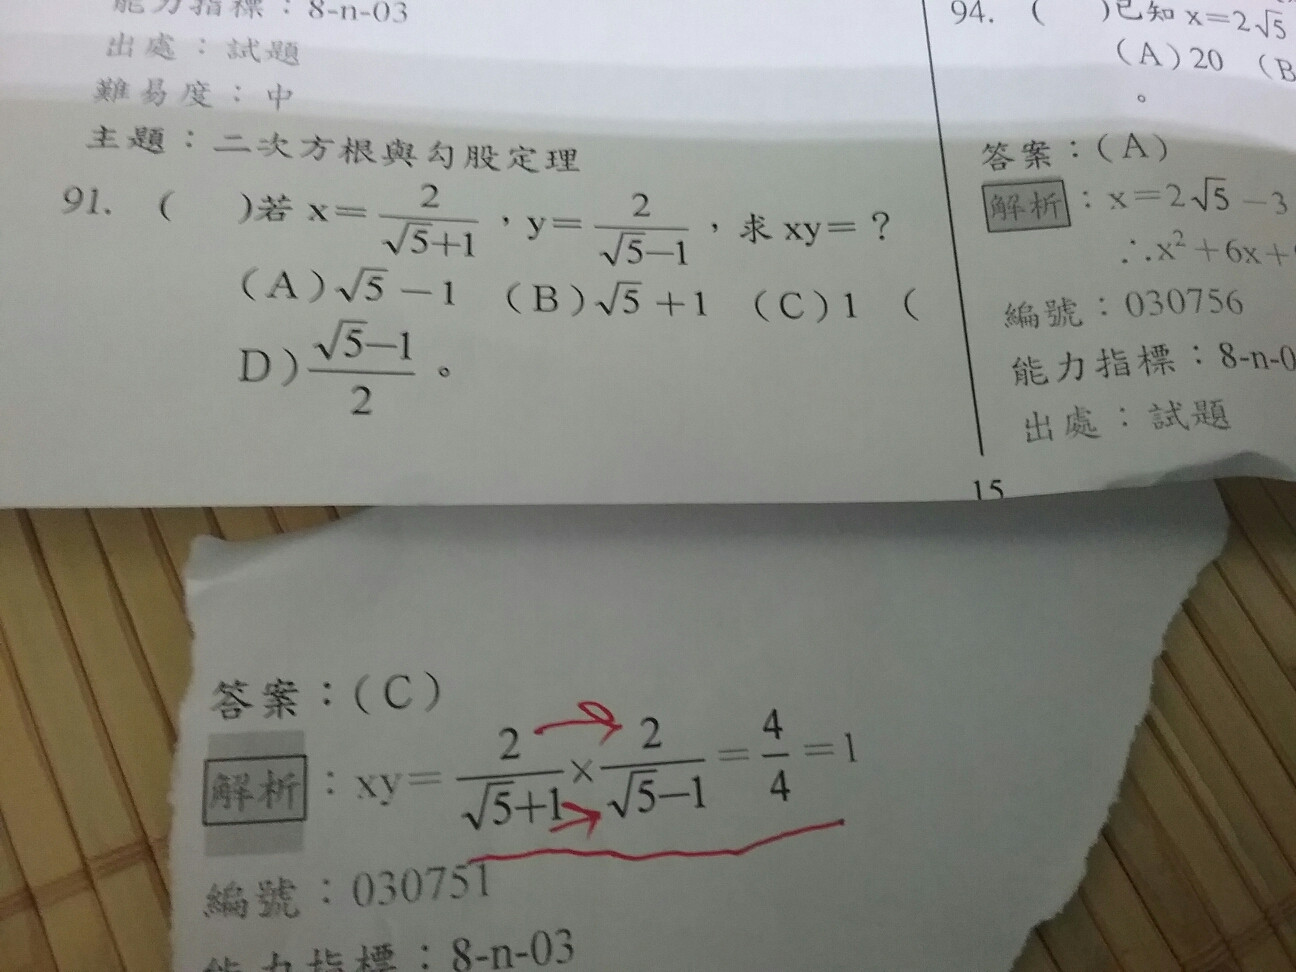 能力指標：8-n-03
出處：試題
難易度：中
主題：二次方根與勾股定理
91. (　　)若 x＝2/(√5+1)，y＝2/(√5−1)，求 xy＝？
(A)√5－1　(B)√5＋1　(C)1　(
D)(√5−1)/2。
94. (　　)已知 x＝2√5
(A)20　(B
。
答案：(A)
解析：x＝2√5－3
∴x²＋6x＋
編號：030756
能力指標：8-n-0
出處：試題
15
答案：(C)
解析：xy＝2/(√5+1)×2/(√5−1)＝4/4＝1
編號：030751
能力指標：8-n-03